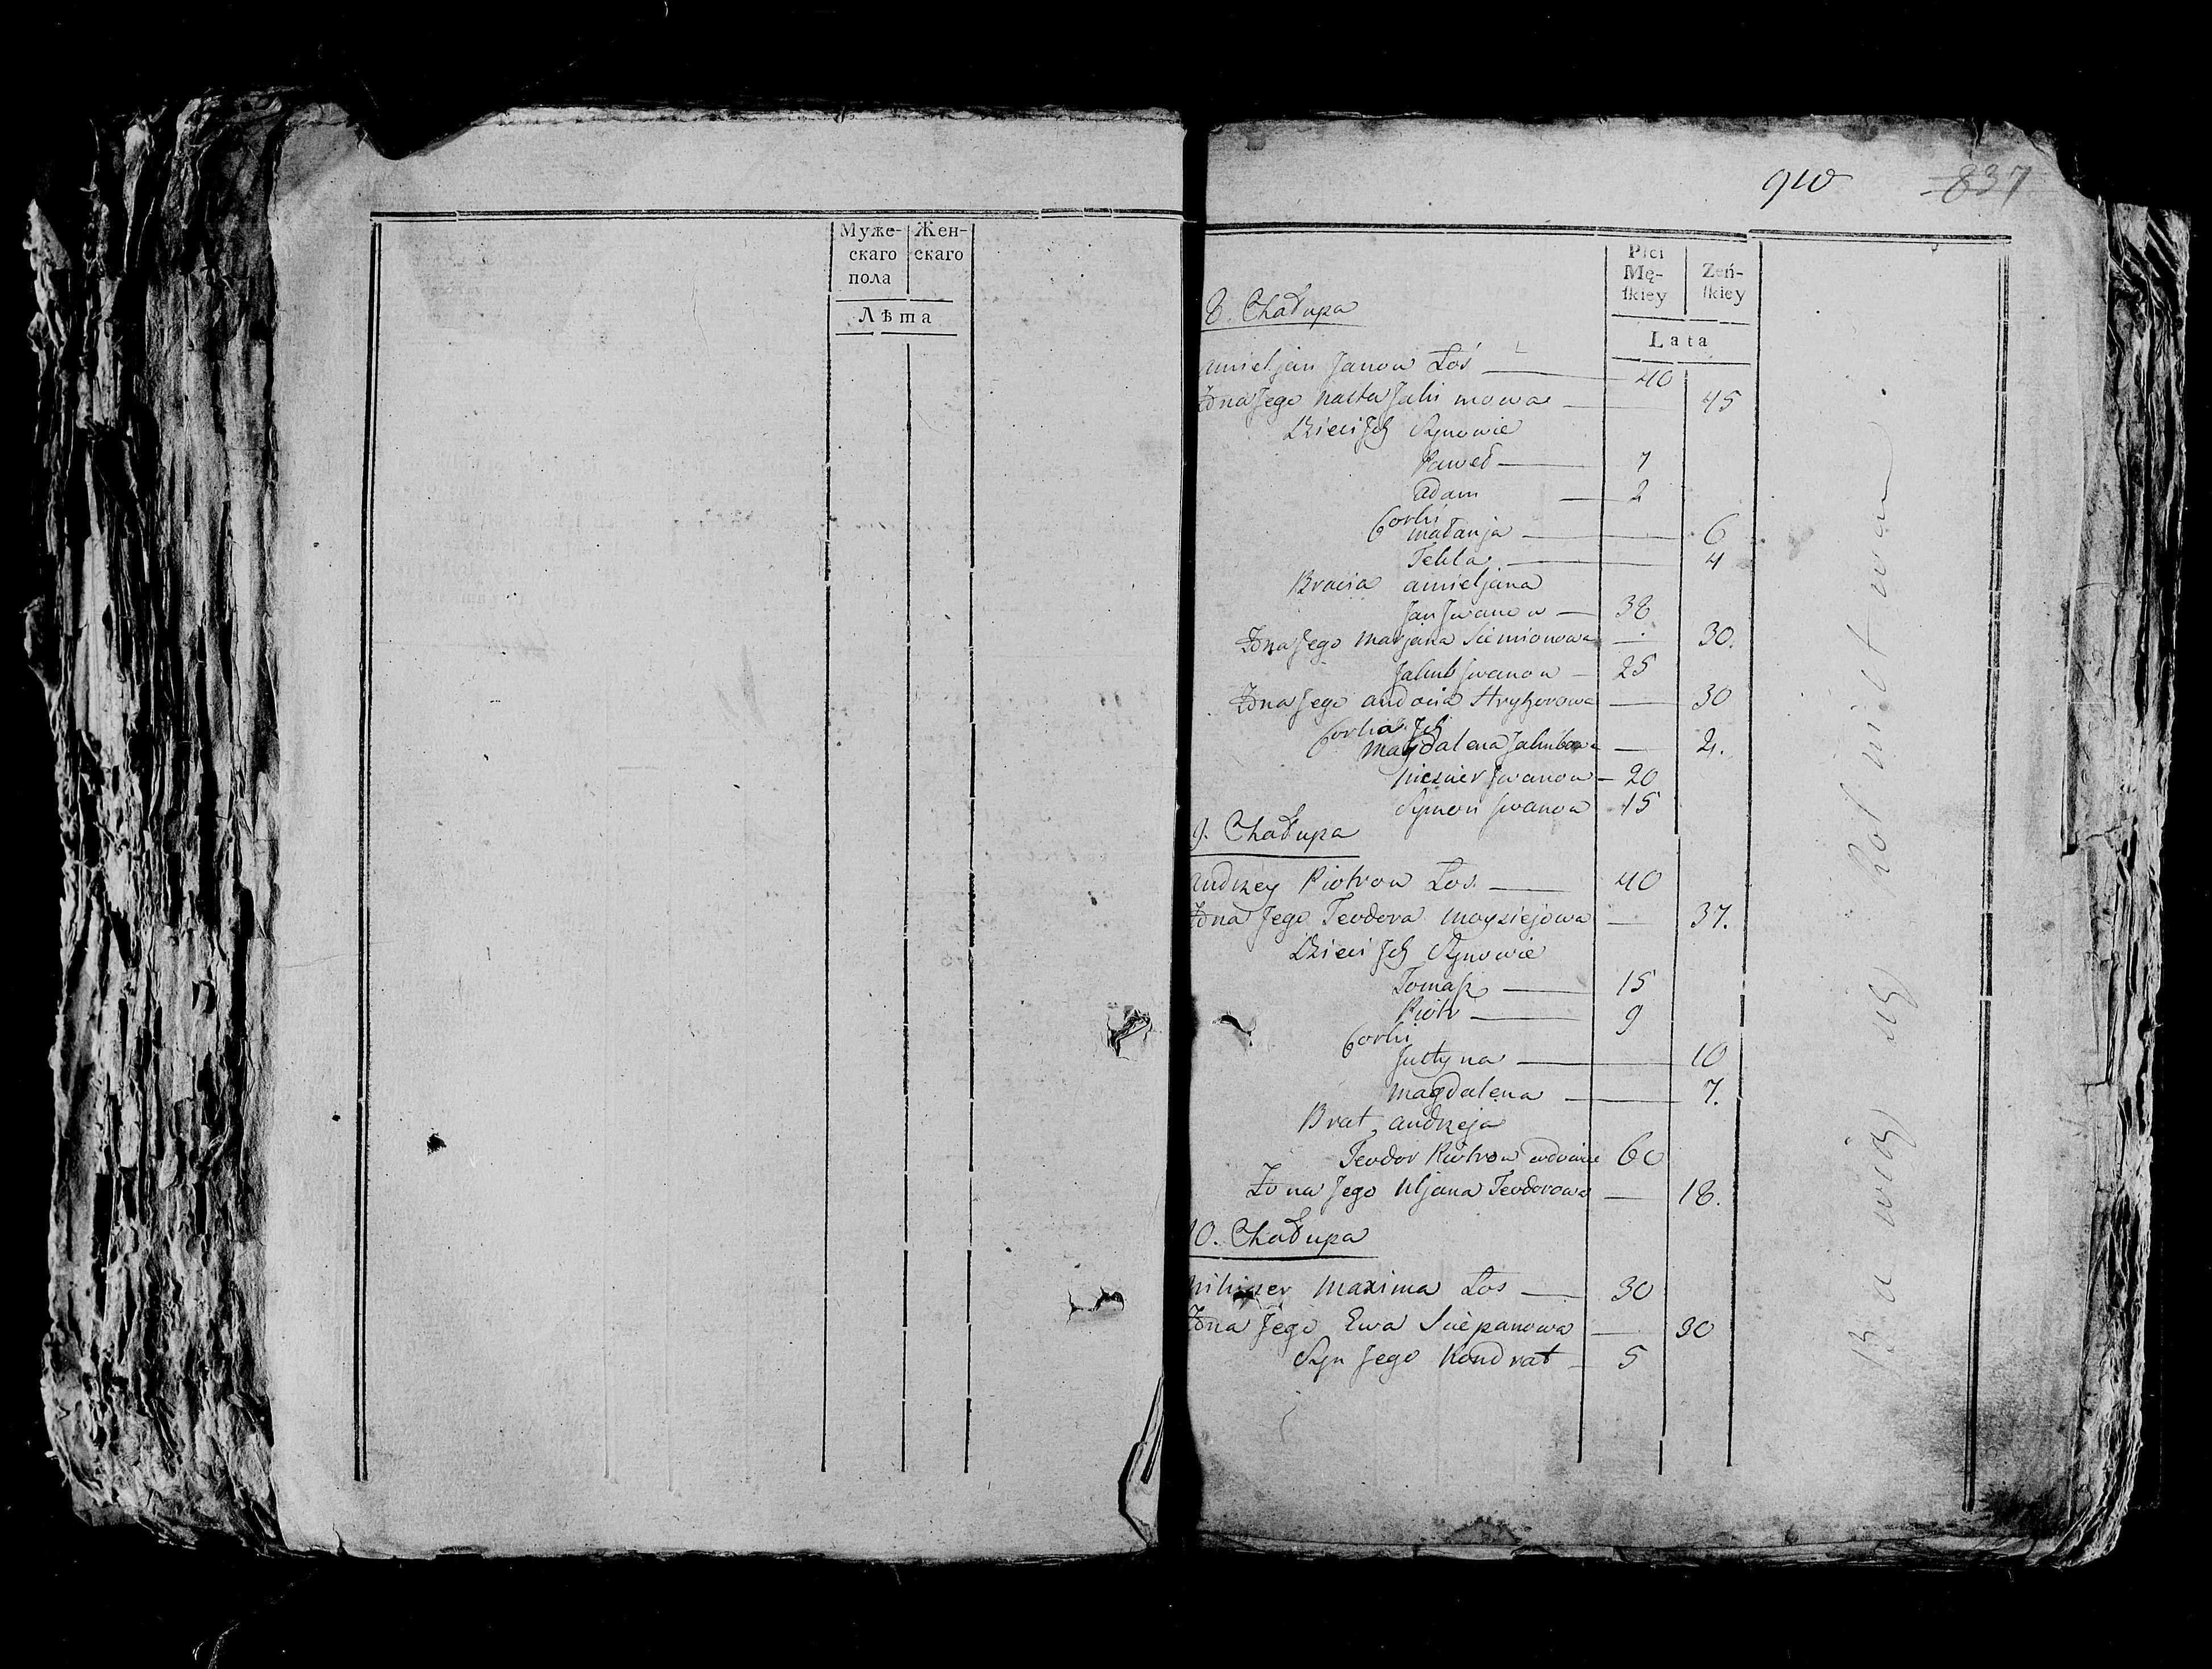 Муже-
скаго
пола
Жен-
скаго
Лѣта
910
837
Płci
Mę-
ſkiey
Zeń-
ſkiey
Lata
8. Chałupa
Amieljan Janow Łoś 40
Żona Jego Nasta Jakimowa 45
Dzieci Jch Synowie
Paweł 7
Adam 2
Corki
Małanja 6
Tekla 4
Bracia Amieljana
Jan Jwanow 38
Żona Jego Marjana Siemionowa 30.
Jakub Jwanow 25
Żona Jego Andocia Hryhorowa 30
Corka Jch
Magdalena Jakubowa 2.
Jwanow 20
Symon Jwanow 15
9. Chałupa
Andrzey Piotrow Łos. 40
Żona Jego Teodora Moysiejowa 37.
Dzieci Jch Synowie
Tomaſz 15
Piotr 9
Corki
Justyna 10
Magdalena 7.
Brat Andrzeja
Teodor Piotrow wdowiec 60
Żona Jego Uljana Teodorowa 18.
10. Chałupa
Maxima Łos 30
Żona Jego Ewa Sciepanowa 30
Syn Jego Kondrat 5
Bawią się Rolnictwem